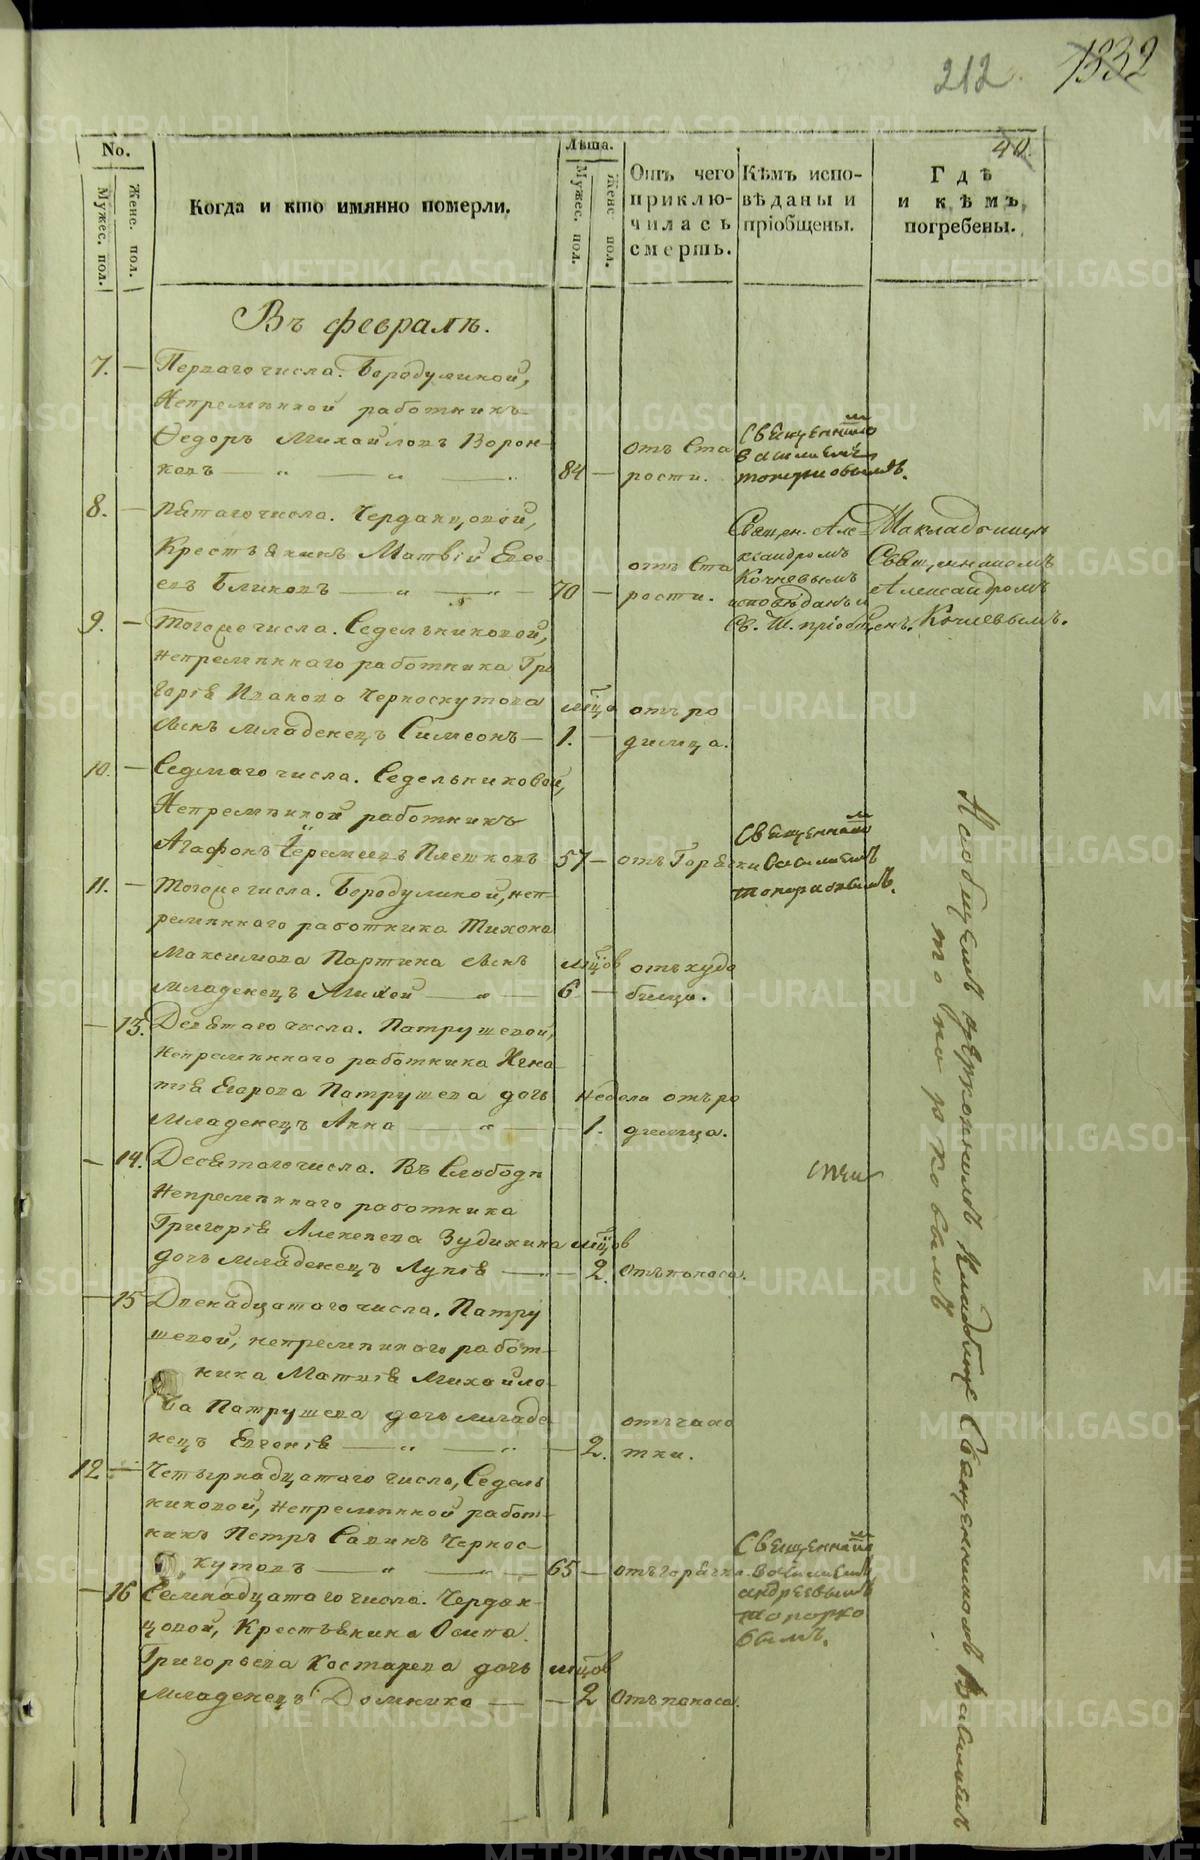 212
1832
40.
No.
Мужес. пол.
Женс. пол.
Когда и кто имянно померли.
Лѣта.
Мужес. пол.
Женс пол.
Отъ чего
приклю-
чилась
смерть.
Кѣмъ испо-
вѣданы и
пріобщены.
Гдѣ
и кѣмъ
погребены.
Въ февралѣ.
7. — Перваго числа. Бородулиной,
Непремѣнной работникъ
Ѳедоръ Михайловъ Ворон-
ковъ — „ — „ — „ 84 —
отъ Ста
рости.
Священникомъ
Василіемъ
топорковымъ.
8. — Пятаго числа. Черданцовой,
Крестьянинъ Матвій Евсе-
евъ Блиновъ — „ — „ — 70 —
отъ Ста
рости.
Священ. Але-
ксандромъ
Кочневымъ
исповѣданъ и
Св. Т. пріобщенъ.
На кладбищи
Священникомъ
Александромъ
Кочневымъ.
9. — Тогоже числа. Седельниковой,
непремѣннаго работника Гри
горія Иванова Черноскутова
сынъ младенецъ Симеонъ — мцъ 1. —
отъ ро
димца.
10. — Седмаго числа. Седельниковой,
Непремѣнной работникъ
Агафонъ Еремѣевъ Плешковъ 57 — отъ Горячки
Священникомъ
Василіемъ
топорковымъ.
11. — Тогоже числа. Бородулиной, неп-
ремѣннаго работника Тихона
Максимова Партина сынъ
младенецъ Михей — „ — мцов 6. —
отъ худо
бища.
— 13. Девятаго числа. Патрушевой,
Непремѣннаго работника Игна
тія Егорова Патрушева дочь
младенецъ Анна — „ — неделя 1.
отъ ро
димца.
— 14. Десятаго числа. Въ Слободѣ
Непремѣннаго работника
Григорія Алексеева Зудихина
дочь младенецъ Лукія — мцов 2. отъ поноса.
— 15 Двенадцатаго числа. Патру
шевой, непремѣннаго работ-
ника Матвія Михайло-
ва Патрушева дочь младе
нецъ Евгенія — „ — „ — 2.
отъ чахо
тки.
12 — Четырнадцатаго числа, Седель
никовой, Непремѣнной работ-
никъ Петръ Савинъ Чернос-
кутовъ — „ — „ 65 — отъ горячки.
Священникомъ
Василіемъ
андреевымъ
топорко
вымъ.
— 16 Семнадцатаго числа. Чердан-
цовой, Крестьянина Осипа
Григорьева Костарева дочь
младенецъ Домника — мцов 2 Отъ поноса.
На общемъ церковномъ кладбищѣ Священникомъ Василіемъ
топорковымъ
METRIKI.GASO-URAL.RU